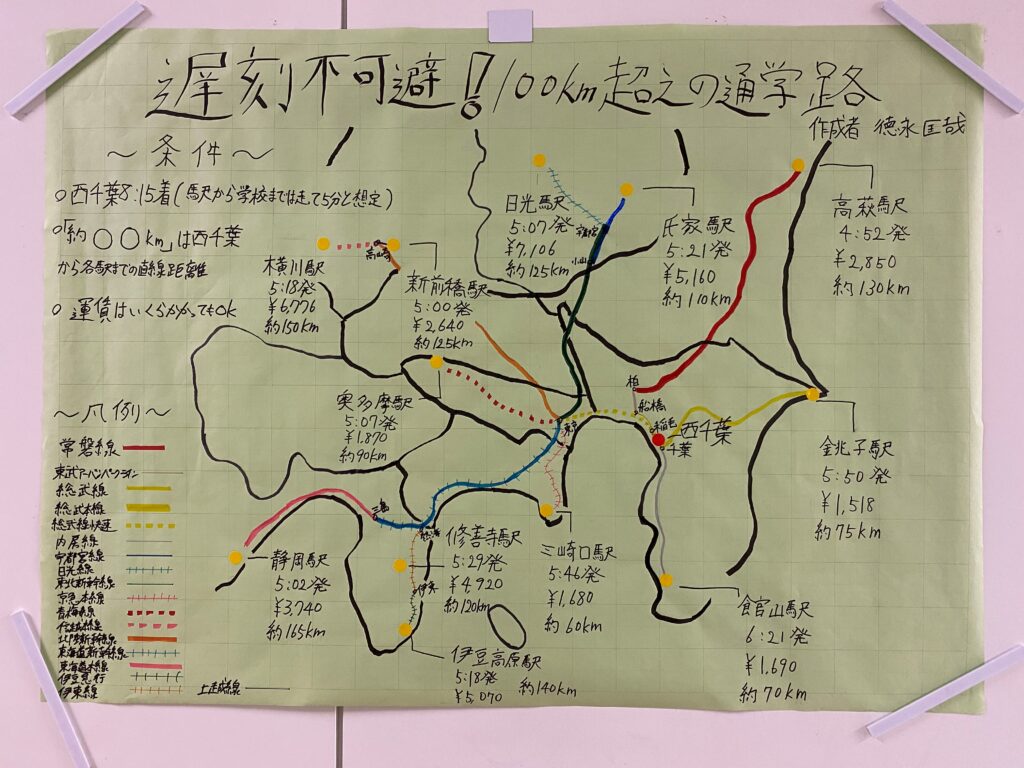 遅刻不可避！100km超えの通学路
作成者 徳永匡哉
〜条件〜
○西千葉8:15着(駅から学校までは走って5分と想定)
○「約○○km」は西千葉
から各駅までの直線距離
○ 運賃はいくらかかってもOK
日光駅
5:07発
¥7,106
約125km
氏家駅
5:21発
¥5,160
約110km
高萩駅
4:52発
¥2,850
約130km
横川駅
5:18発
¥6,776
約150km
新前橋駅
5:00発
¥2,640
約125km
高崎
宇都宮
小山
奥多摩駅
5:07発
¥1,870
約90km
東京
柏
船橋
稲毛
西千葉
千葉
銚子駅
5:50発
¥1,518
約75km
〜凡例〜
常磐線
東武アーバンパークライン
総武線
総武本線
総武線快速
内房線
宇都宮線
日光線
東北新幹線
京急本線
青梅線
信越線
北陸新幹線
東海道新幹線
東海道本線
伊豆急行
伊東線
上越線
三島
熱海
伊東
静岡駅
5:02発
¥3,740
約165km
修善寺駅
5:29発
¥4,920
約120km
三崎口駅
5:46発
¥1,680
約60km
館山駅
6:21発
¥1,690
約70km
伊豆高原駅
5:18発
¥5,070
約140km